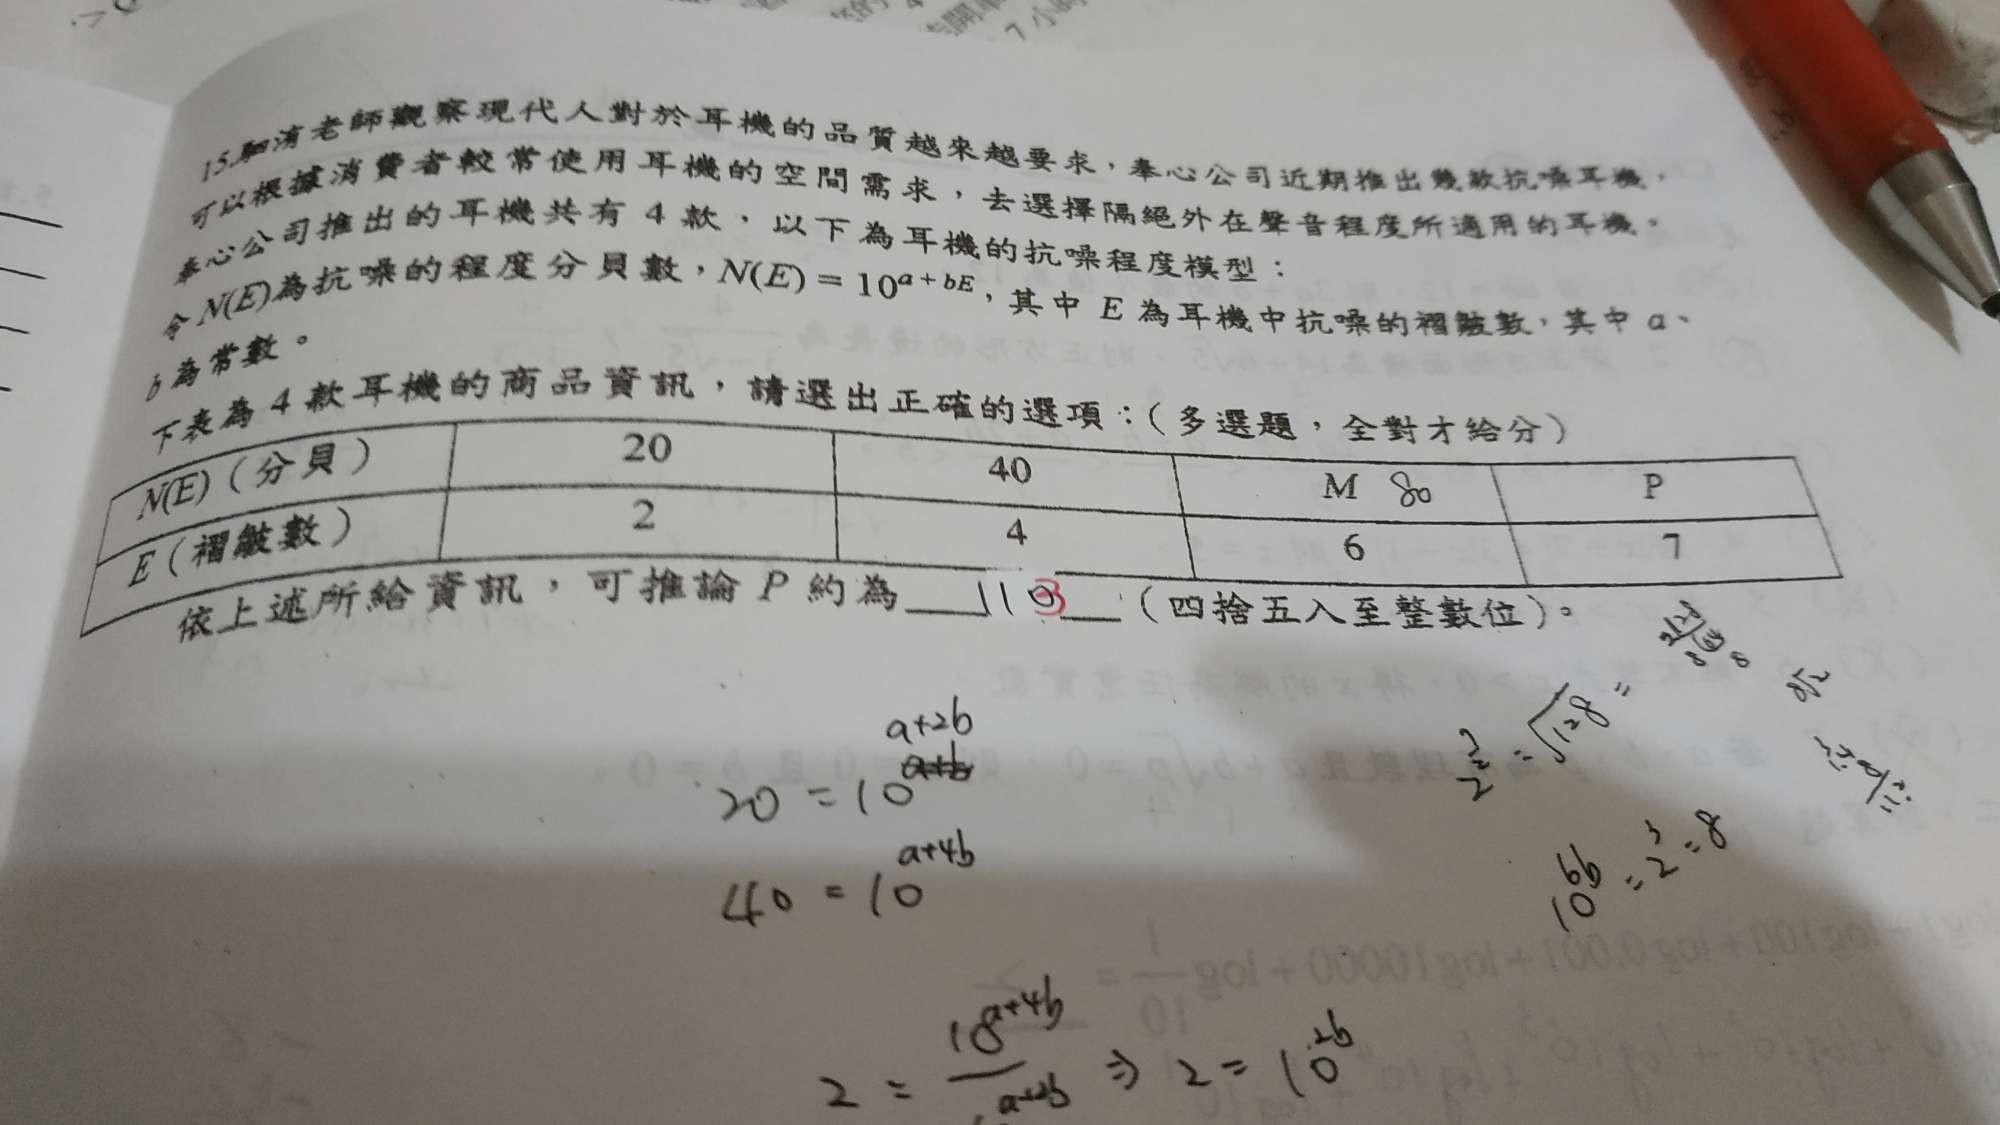 15.駟淯老師觀察現代人對於耳機的品質越來越要求，奉心公司近期推出幾款抗噪耳機，
可以根據消費者較常使用耳機的空間需求，去選擇隔絕外在聲音程度所適用的耳機。
奉心公司推出的耳機共有 4 款，以下為耳機的抗噪程度模型：
令 N(E)為抗噪的程度分貝數，N(E) = 10^{a + bE}，其中 E 為耳機中抗噪的褶皺數，其中 a、
b 為常數。
下表為 4 款耳機的商品資訊，請選出正確的選項：（多選題，全對才給分）
N(E)（分貝） 20 40 M 80 P
E（褶皺數） 2 4 6 7
依上述所給資訊，可推論 P 約為 113 （四捨五入至整數位）。
20 = 10^{a+2b}
40 = 10^{a+4b}
2 = 10^{a+4b} / 10^{a+2b} ⇒ 2 = 10^{2b}
2^{7/2} = √128 =
8√2
10^{6b} = 2^3 = 8